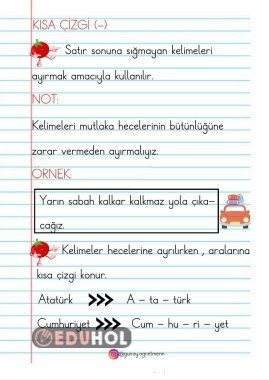 KISA ÇİZGİ (-)
Satır sonuna sığmayan kelimeleri
ayırmak amacıyla kullanılır.
NOT:
Kelimeleri mutlaka hecelerinin bütünlüğüne
zarar vermeden ayırmalıyız.
ÖRNEK:
Yarın sabah kalkar kalkmaz yola çıka-
cağız.
Kelimeler hecelerine ayrılırken , aralarına
kısa çizgi konur.
Atatürk >>> A - ta - türk
Cumhuriyet >>> Cum - hu - ri - yet
EDUHOL